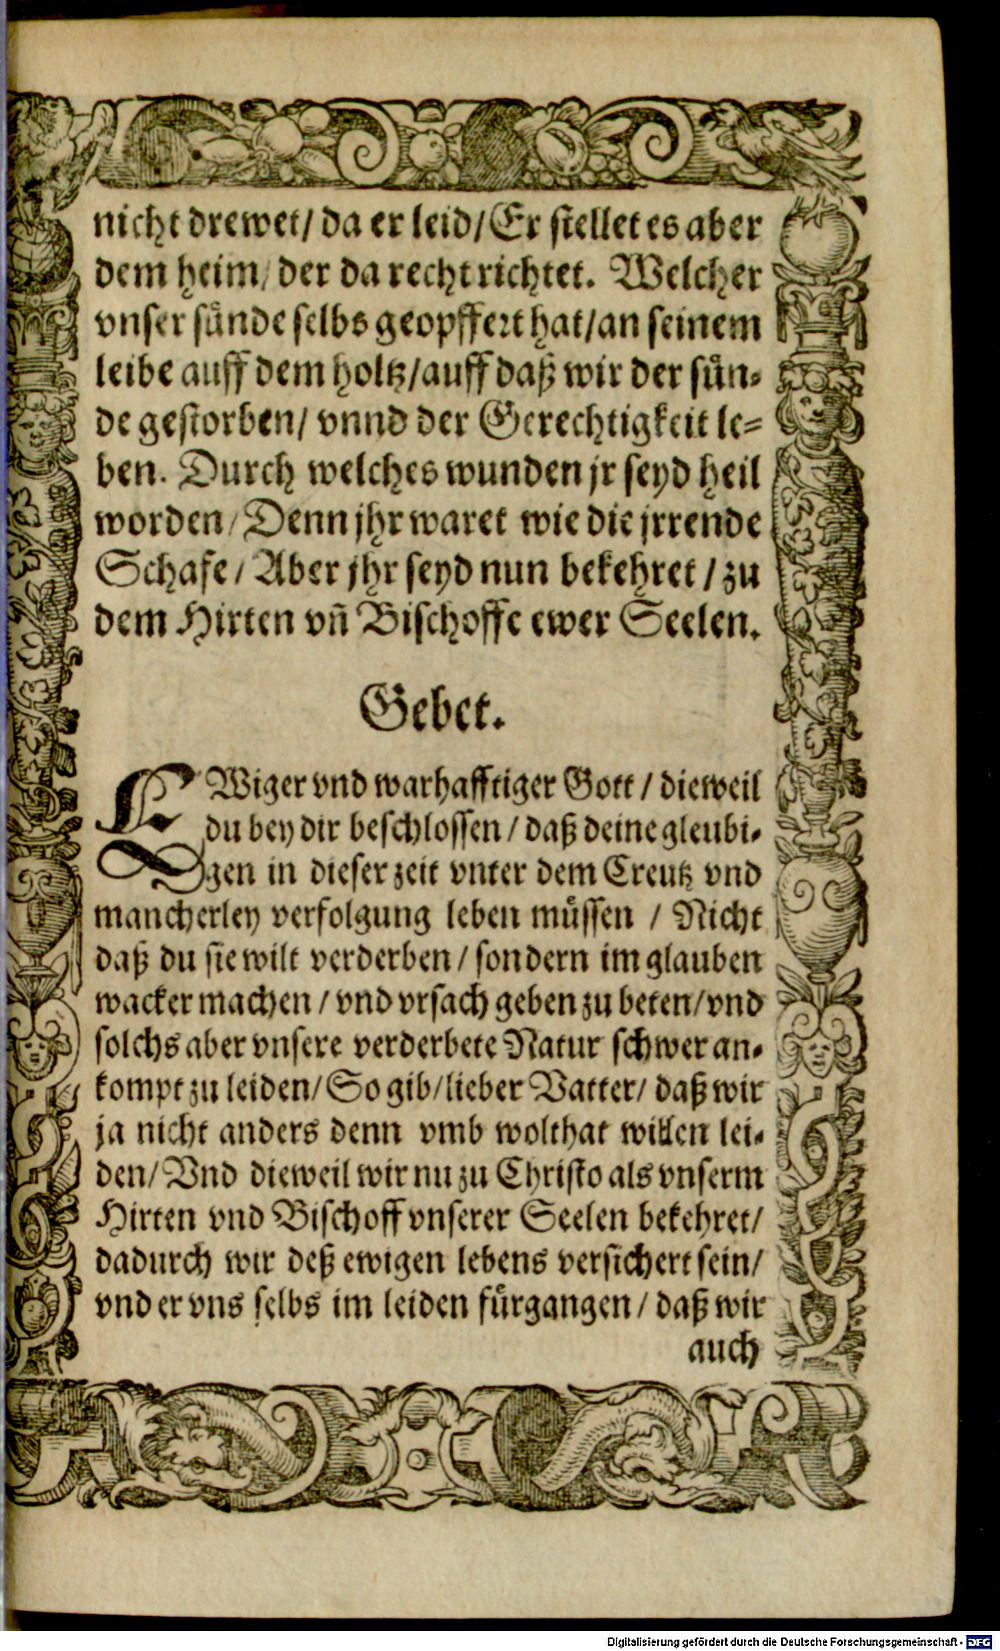 nicht drewet/ da er leid/ Er stellet es aber
dem heim/ der da recht richtet. Welcher
vnser sünde selbs geopffert hat/ an seinem
leibe auff dem holtz/ auff daß wir der sün-
de gestorben/ vnnd der Gerechtigkeit le-
ben. Durch welches wunden jr seyd heil
worden/ Denn jhr waret wie die jrrende
Schafe/ Aber jhr seyd nun bekehret/ zu
dem Hirten vñ Bischoffe ewer Seelen.
Gebet.
EWiger vnd warhafftiger Gott/ dieweil
du bey dir beschlossen/ daß deine gleubi-
gen in dieser zeit vnter dem Creutz vnd
mancherley verfolgung leben müssen / Nicht
daß du sie wilt verderben/ sondern im glauben
wacker machen/ vnd vrsach geben zu beten/ vnd
solchs aber vnsere verderbete Natur schwer an-
kompt zu leiden/ So gib/ lieber Vatter/ daß wir
ja nicht anders denn vmb wolthat willen lei-
den/ Vnd dieweil wir nu zu Christo als vnserm
Hirten vnd Bischoff vnserer Seelen bekehret/
dadurch wir deß ewigen lebens versichert sein/
vnd er vns selbs im leiden fürgangen/ daß wir
auch
Digitalisierung gefördert durch die Deutsche Forschungsgemeinschaft - DFG